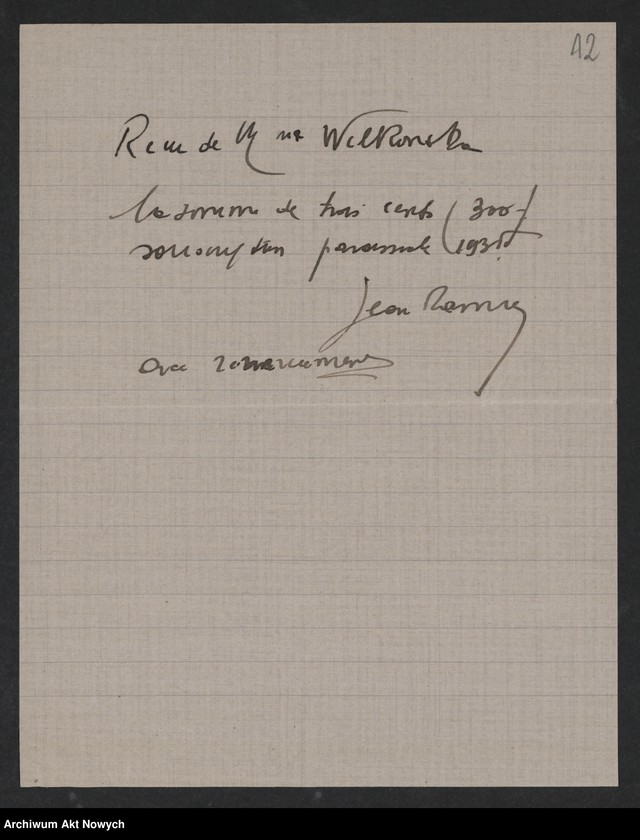 12
Recu de Mme Wilkonska
la somme de trois cents (300-)
souscription paroissiale 1935
Jean
avec remerciements
Archiwum Akt Nowych